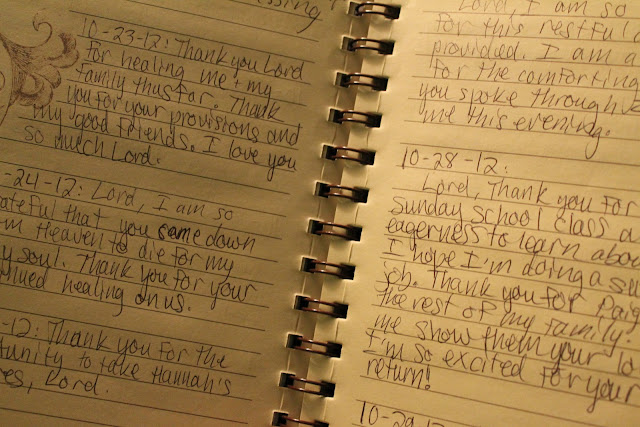 essing
10-23-12: Thank you Lord
for healing me & my
family thus far. Thank
you for your provisions and
my good friends. I love you
so much Lord.
-24-12: Lord, I am so
ateful that you came down
m Heaven to die for my
y soul. Thank you for your
inued healing on us.
-12: Thank you for the
tunity to take Hannah's
res, Lord.
Lord, I am so
for this restful
provided. I am a
for the comforting
you spoke through
me this evening.
10-28-12:
Lord, Thank you for
Sunday school class a
eagerness to learn abou
I hope I'm doing a su
job. Thank you for Paig
the rest of my family.
me show them your lo
I'm so excited for your
return!
10-29-12